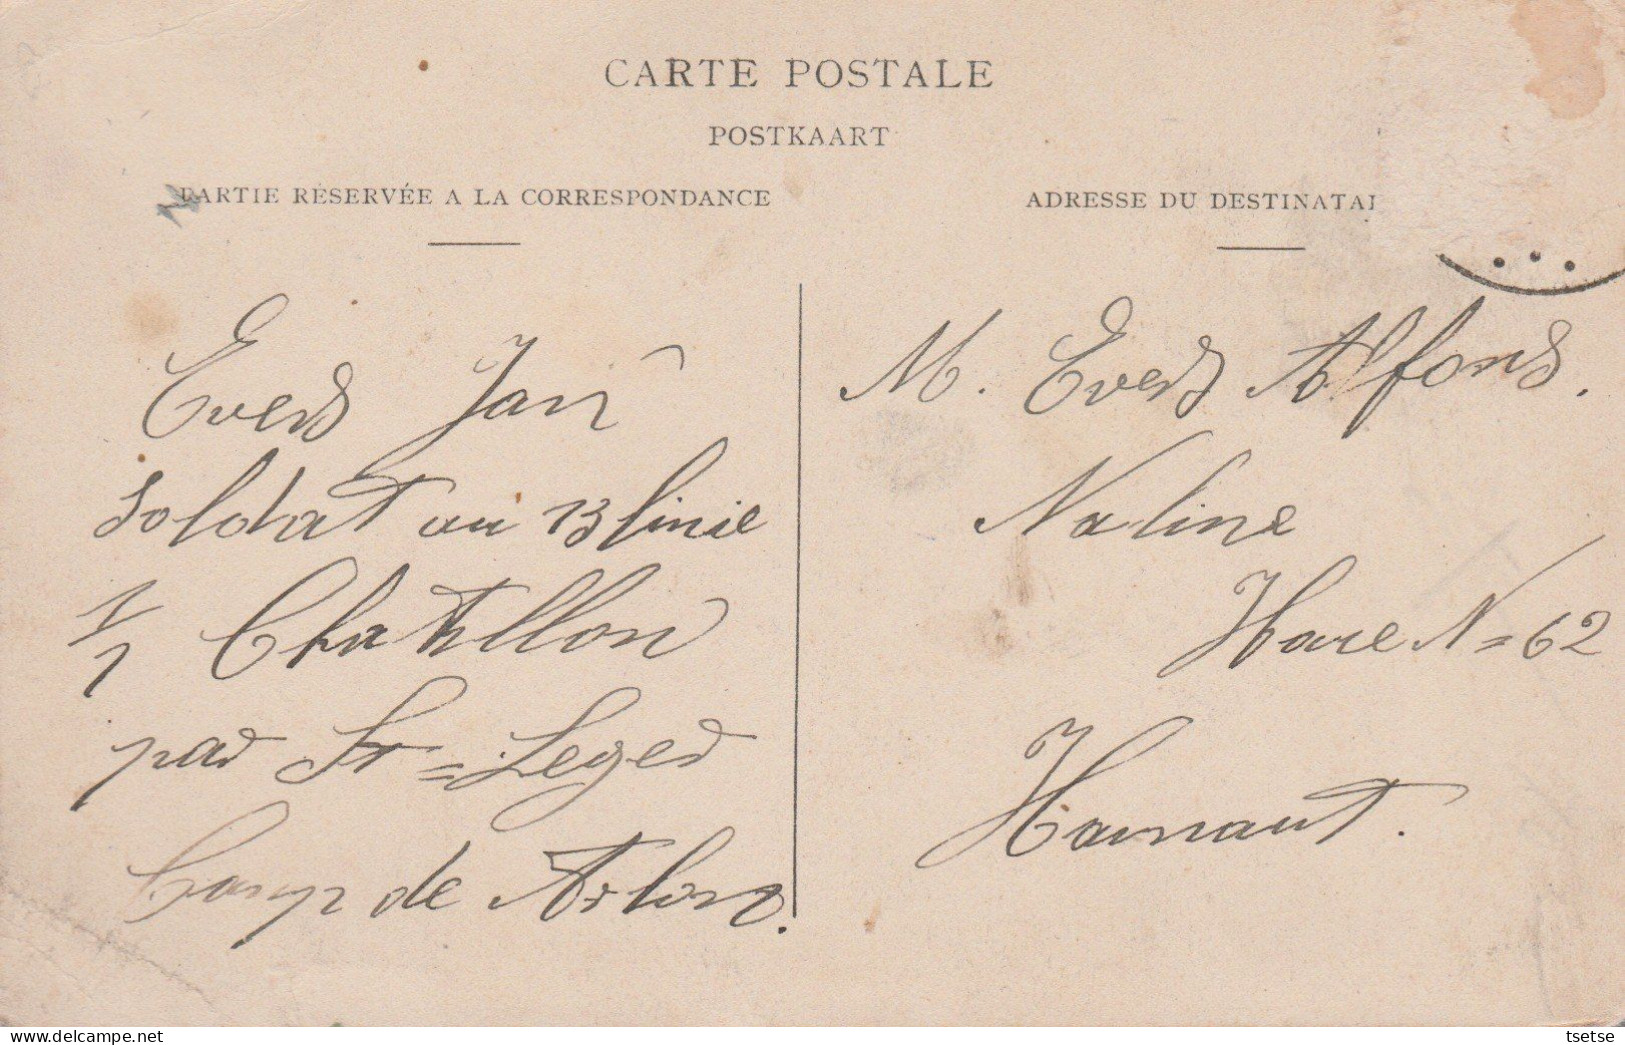 CARTE POSTALE
POSTKAART
PARTIE RÉSERVÉE A LA CORRESPONDANCE
ADRESSE DU DESTINATAI
Evers Jan
Soldat au 13 linie
1/1 Chatillon
par St=Leger
Camp de Arlon.
M. Evers Alfons.
Naline
Haie N=62
Hainaut.
www.delcampe.net
tsetse